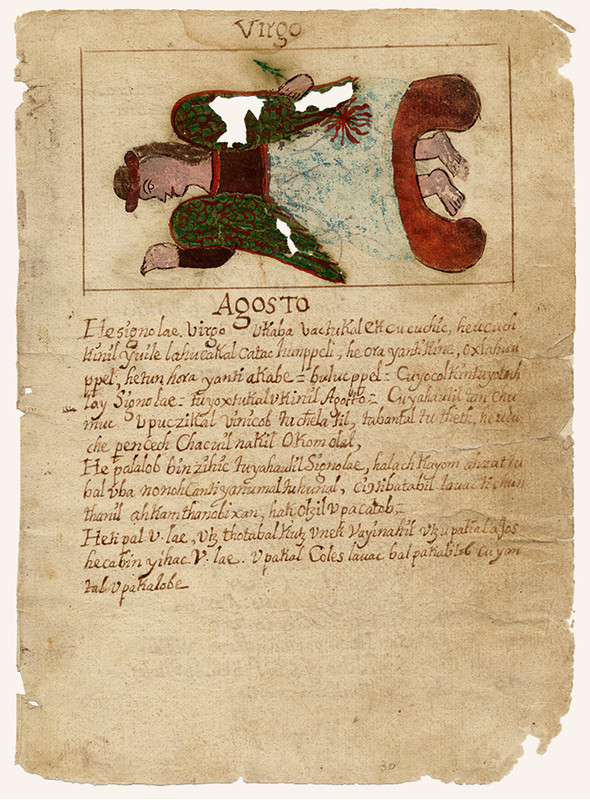 Virgo
AGOSTO
He signo lae, virgo u kaba vactukal ek cu cuchic, he u cuch
kinil Yuile lahucakal catac humppeli, he ora yanti kine, oxlahun
ppel, he tun hora yanti akabe = bulucppel = Cuyocol kin tuyotoch
lay Signolae = tuyoxtukal u kinil Agosto = Cuyahaulil tan chu
muc u puczikal vinicob tu chela til, tabantal tu theth, he u
che pencech Chacuil nakil Okom olal,
He palalob bin zihic tuyahaulil Signolae, halach kayom
bal uba nonoh Canti yanumal tuhunal, lauac ti chun
thanil ah kam thanobi xan, hak olzil u pacatob =
Hek pal v. lae, utz thotabal kutz u nek Yayinakil utz u pakal ajos
he cabin yihac V. lae. u pakal Coles lauac bal pakalil cu yan
tal u pakalobe
30